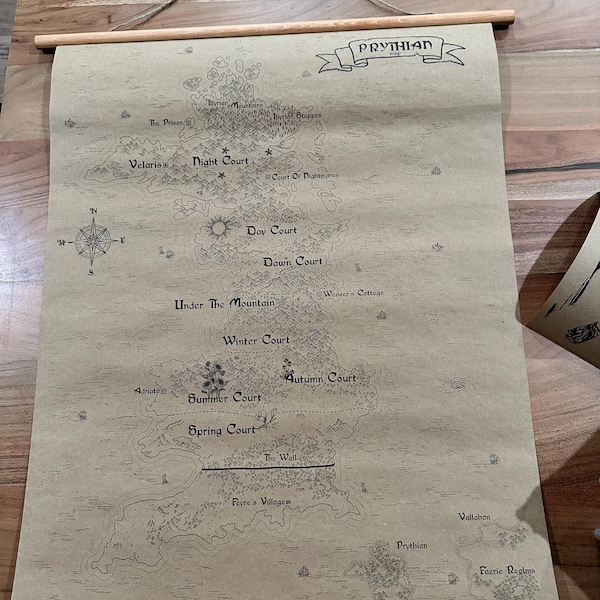 PRYTHIAN
map
Illyrian Mountains
Illyrian Steppes
The Prison
Velaris
Night Court
Court Of Nightmares
N
W
E
S
Day Court
Dawn Court
Weaver's Cottage
Under The Mountain
Winter Court
Autumn Court
Adriata
Summer Court
Spring Court
The Wall
Feyre's Village
Vallahan
Prythian
Faerie Realms